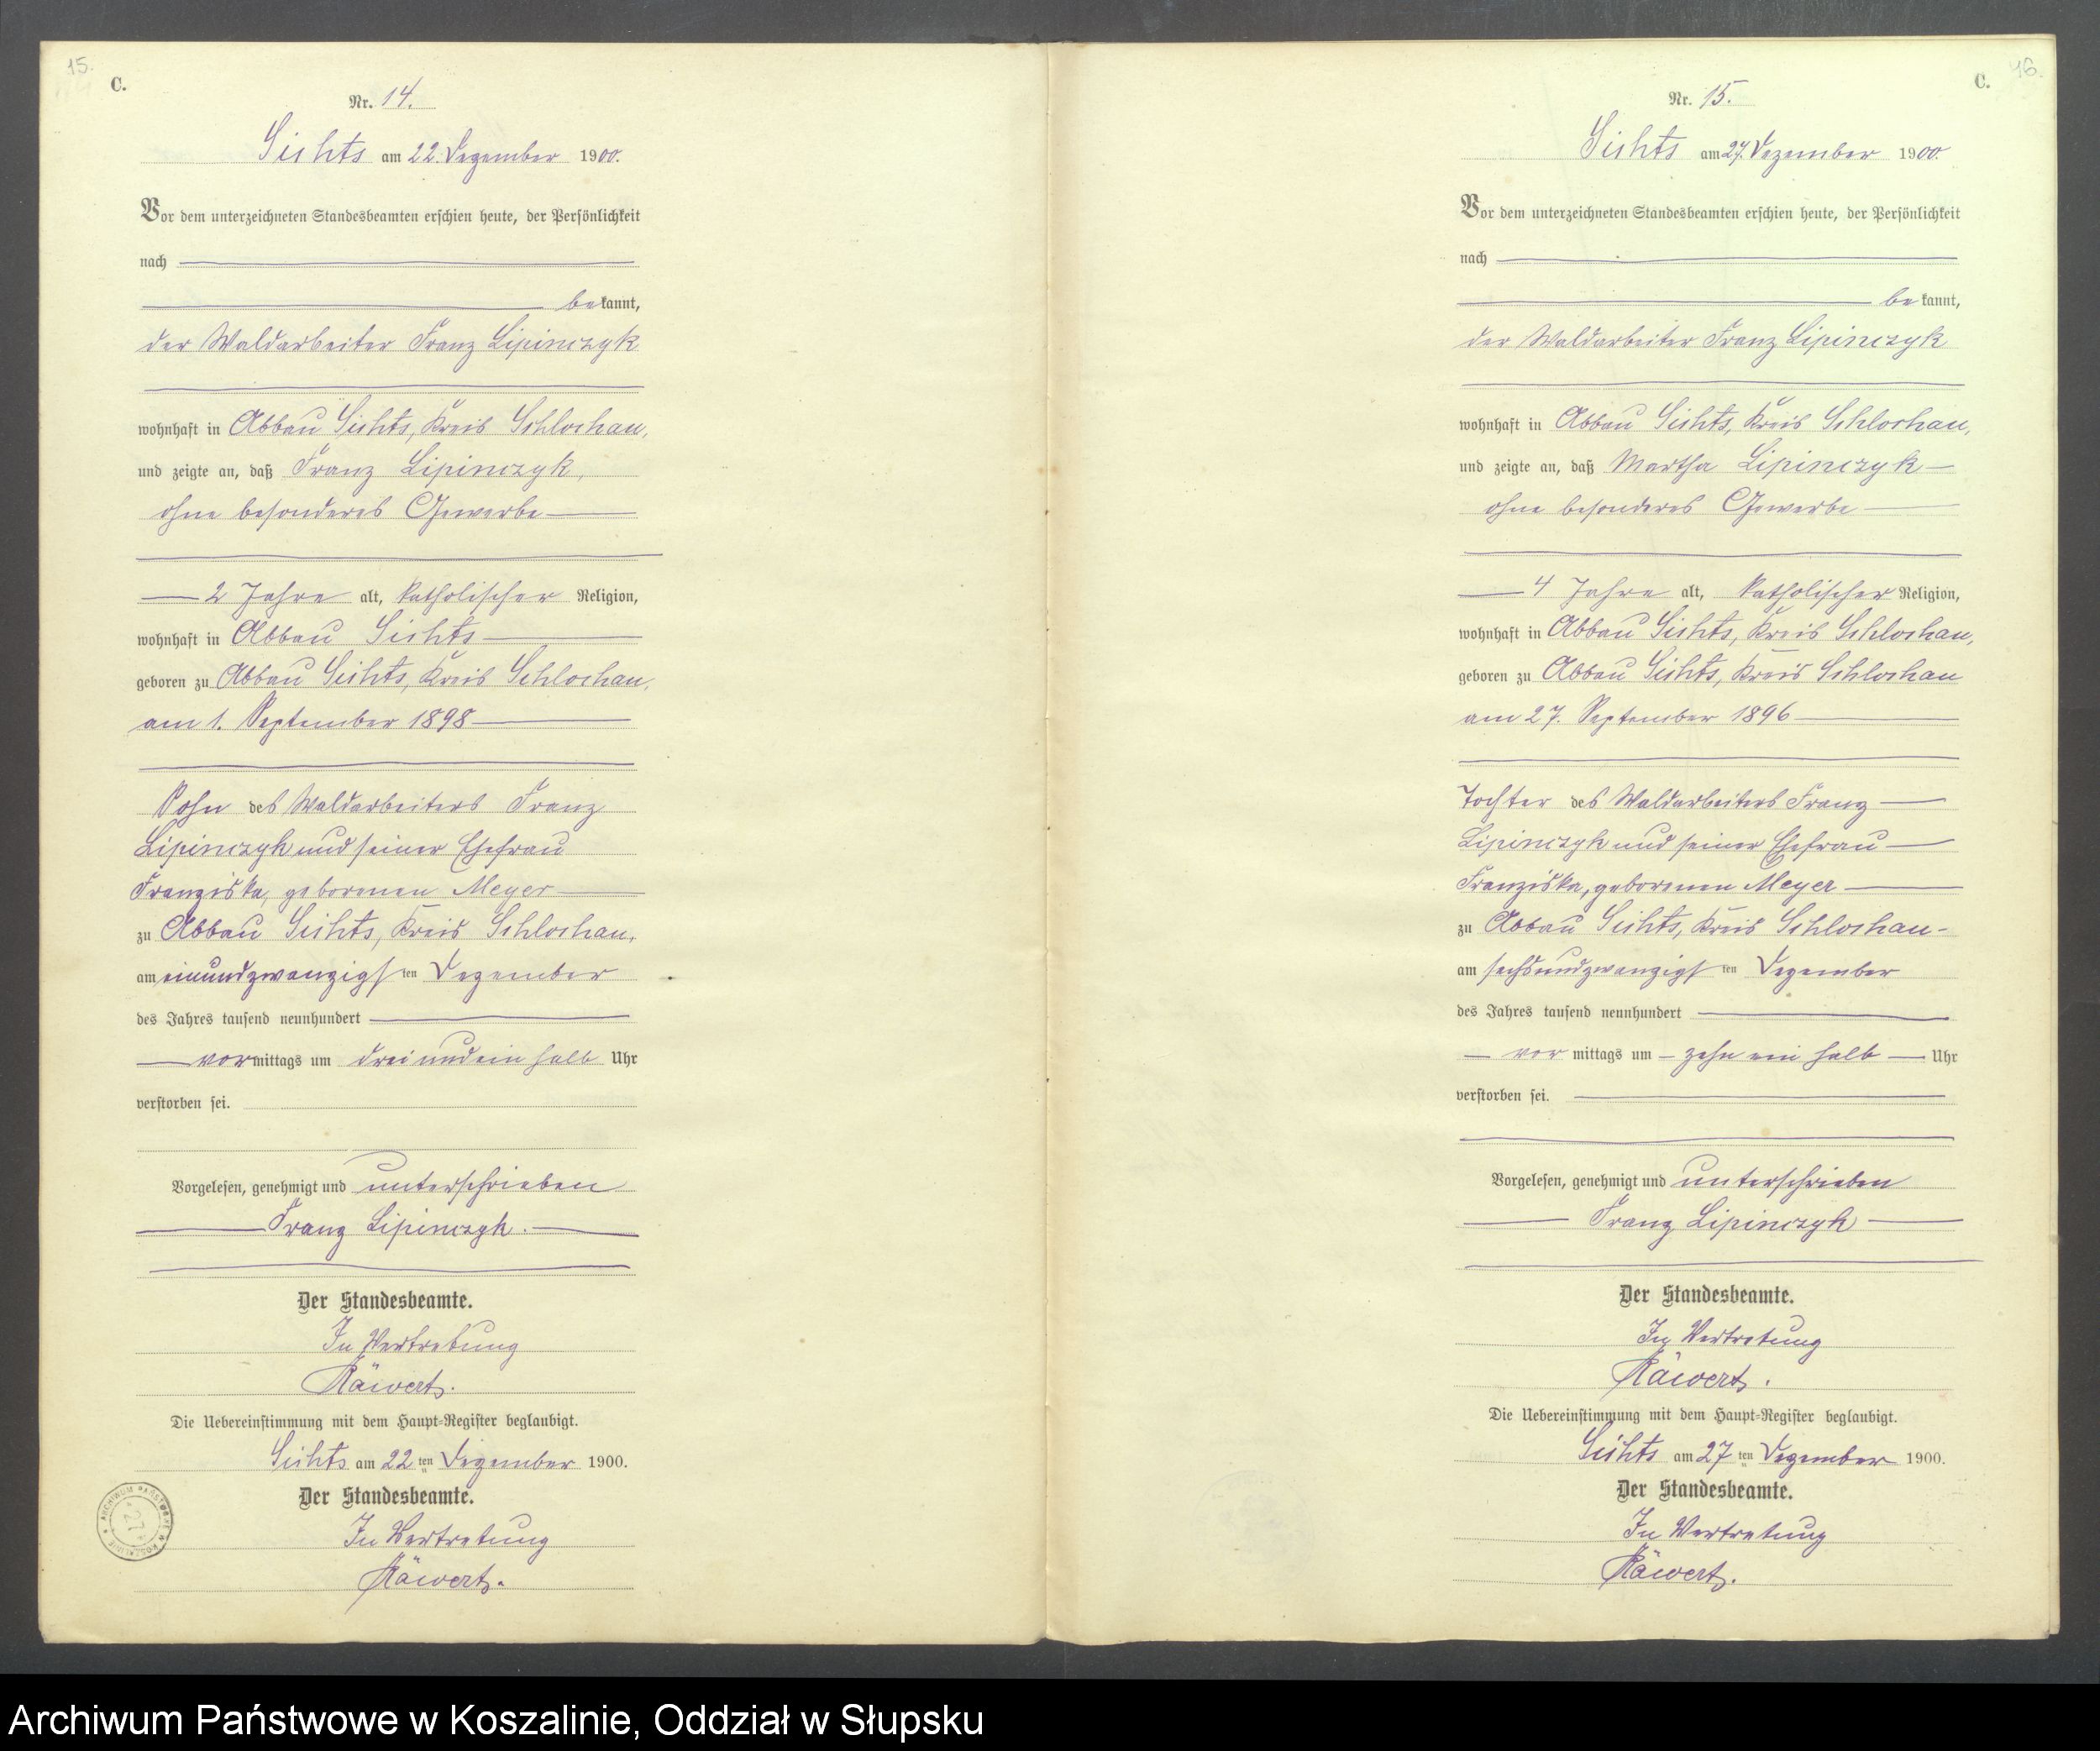 15.
C.
Nr. 14.
Sichts am 22. Dezember 1900.
Vor dem unterzeichneten Standesbeamten erschien heute, der Persönlichkeit
nach
bekannt,
der Waldarbeiter Franz Lipinczyk
wohnhaft in Abbau Sichts, Kreis Schlochau,
und zeigte an, daß Franz Lipinczyk,
ohne besonderes Gewerbe
2 Jahre alt, katholischer Religion,
wohnhaft in Abbau Sichts
geboren zu Abbau Sichts, Kreis Schlochau,
am 1. September 1898
Sohn des Waldarbeiters Franz
Lipinczyk und seiner Ehefrau
Franziska, geborenen Meyer
zu Abbau Sichts, Kreis Schlochau,
am einundzwanzigsten Dezember
des Jahres tausend neunhundert
vormittags um drei und ein halb Uhr
verstorben sei.
Vorgelesen, genehmigt und unterschrieben
Franz Lipinczyk.
Der Standesbeamte.
In Vertretung
Die Uebereinstimmung mit dem Haupt-Register beglaubigt.
Sichts am 22ten Dezember 1900.
Der Standesbeamte.
In Vertretung
ARCHIWUM PAŃSTWOWE W KOSZALINIE
16.
C.
Nr. 15.
Sichts am 27. Dezember 1900.
Vor dem unterzeichneten Standesbeamten erschien heute, der Persönlichkeit
nach
bekannt,
der Waldarbeiter Franz Lipinczyk
wohnhaft in Abbau Sichts, Kreis Schlochau,
und zeigte an, daß Martha Lipinczyk
ohne besonderes Gewerbe
4 Jahre alt, katholischer Religion,
wohnhaft in Abbau Sichts, Kreis Schlochau,
geboren zu Abbau Sichts, Kreis Schlochau
am 27. September 1896
Tochter des Waldarbeiters Franz
Lipinczyk und seiner Ehefrau
Franziska, geborenen Meyer
zu Abbau Sichts, Kreis Schlochau
am sechsundzwanzigsten Dezember
des Jahres tausend neunhundert
vormittags um zehn ein halb Uhr
verstorben sei.
Vorgelesen, genehmigt und unterschrieben
Franz Lipinczyk
Der Standesbeamte.
In Vertretung
Die Uebereinstimmung mit dem Haupt-Register beglaubigt.
Sichts am 27ten Dezember 1900.
Der Standesbeamte.
In Vertretung
Archiwum Państwowe w Koszalinie, Oddział w Słupsku